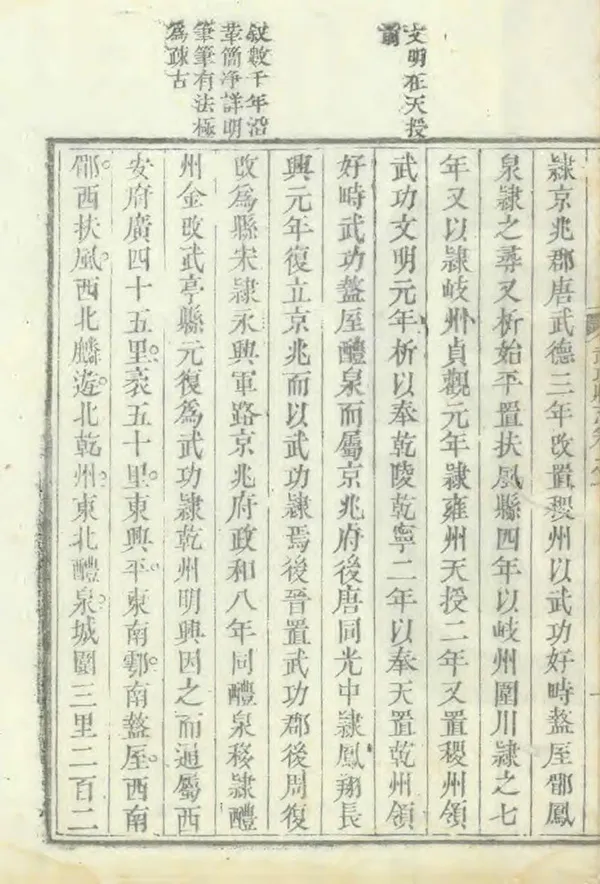 文明在天授
前
敘數千年沿
革簡净詳明
筆筆有法極
為疎古
隸京兆郡唐武德三年改置稷州以武功好時盩厔郿鳳
泉隸之尋又析始平置扶風縣四年以岐州圍川隸之七
年又以隸岐州貞觀元年隸雍州天授二年又置稷州領
武功文明元年析以奉乾陵乾寧二年以奉天置乾州領
好時武功盩厔醴泉而屬京兆府後唐同光中隸鳳翔長
興元年復立京兆而以武功隸焉後晉置武功郡後周復
改為縣宋隸永興軍路京兆府政和八年同醴泉移隸醴
州金改武亭縣元復為武功隸乾州明興因之而迺屬西
安府廣四十五里。袤五十里。東興平。東南鄠。南盩厔。西南
郿。西扶風。西北麟遊。北乾州。東北醴泉。城圍三里二百二